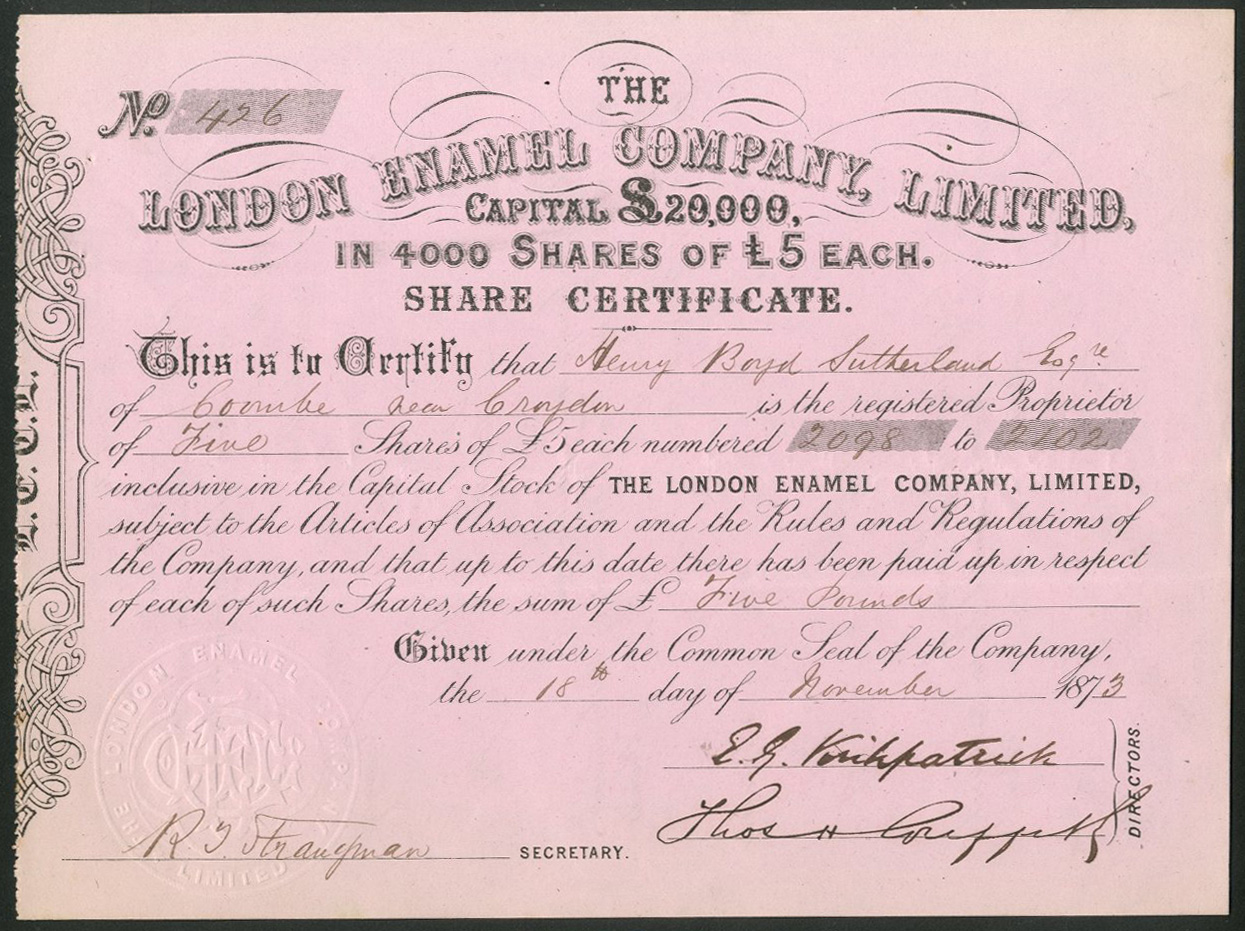 No. 426
THE
LONDON ENAMEL COMPANY, LIMITED,
CAPITAL £20,000,
IN 4000 SHARES OF £5 EACH.
SHARE CERTIFICATE.
This is to Certify that Henry Boyd Sutherland Esqre
of Coombe near Croydon is the registered Proprietor
of Five Shares of £5 each numbered 2098 to 2102
inclusive in the Capital Stock of THE LONDON ENAMEL COMPANY, LIMITED,
subject to the Articles of Association and the Rules and Regulations of
the Company, and that up to this date there has been paid up in respect
of each of such Shares, the sum of £ Five Pounds
Given under the Common Seal of the Company,
the 18th day of November 1873
E. G. Kirkpatrick
Thos H
DIRECTORS.
SECRETARY.
THE LONDON ENAMEL COMPANY LIMITED
L. E. C. L.